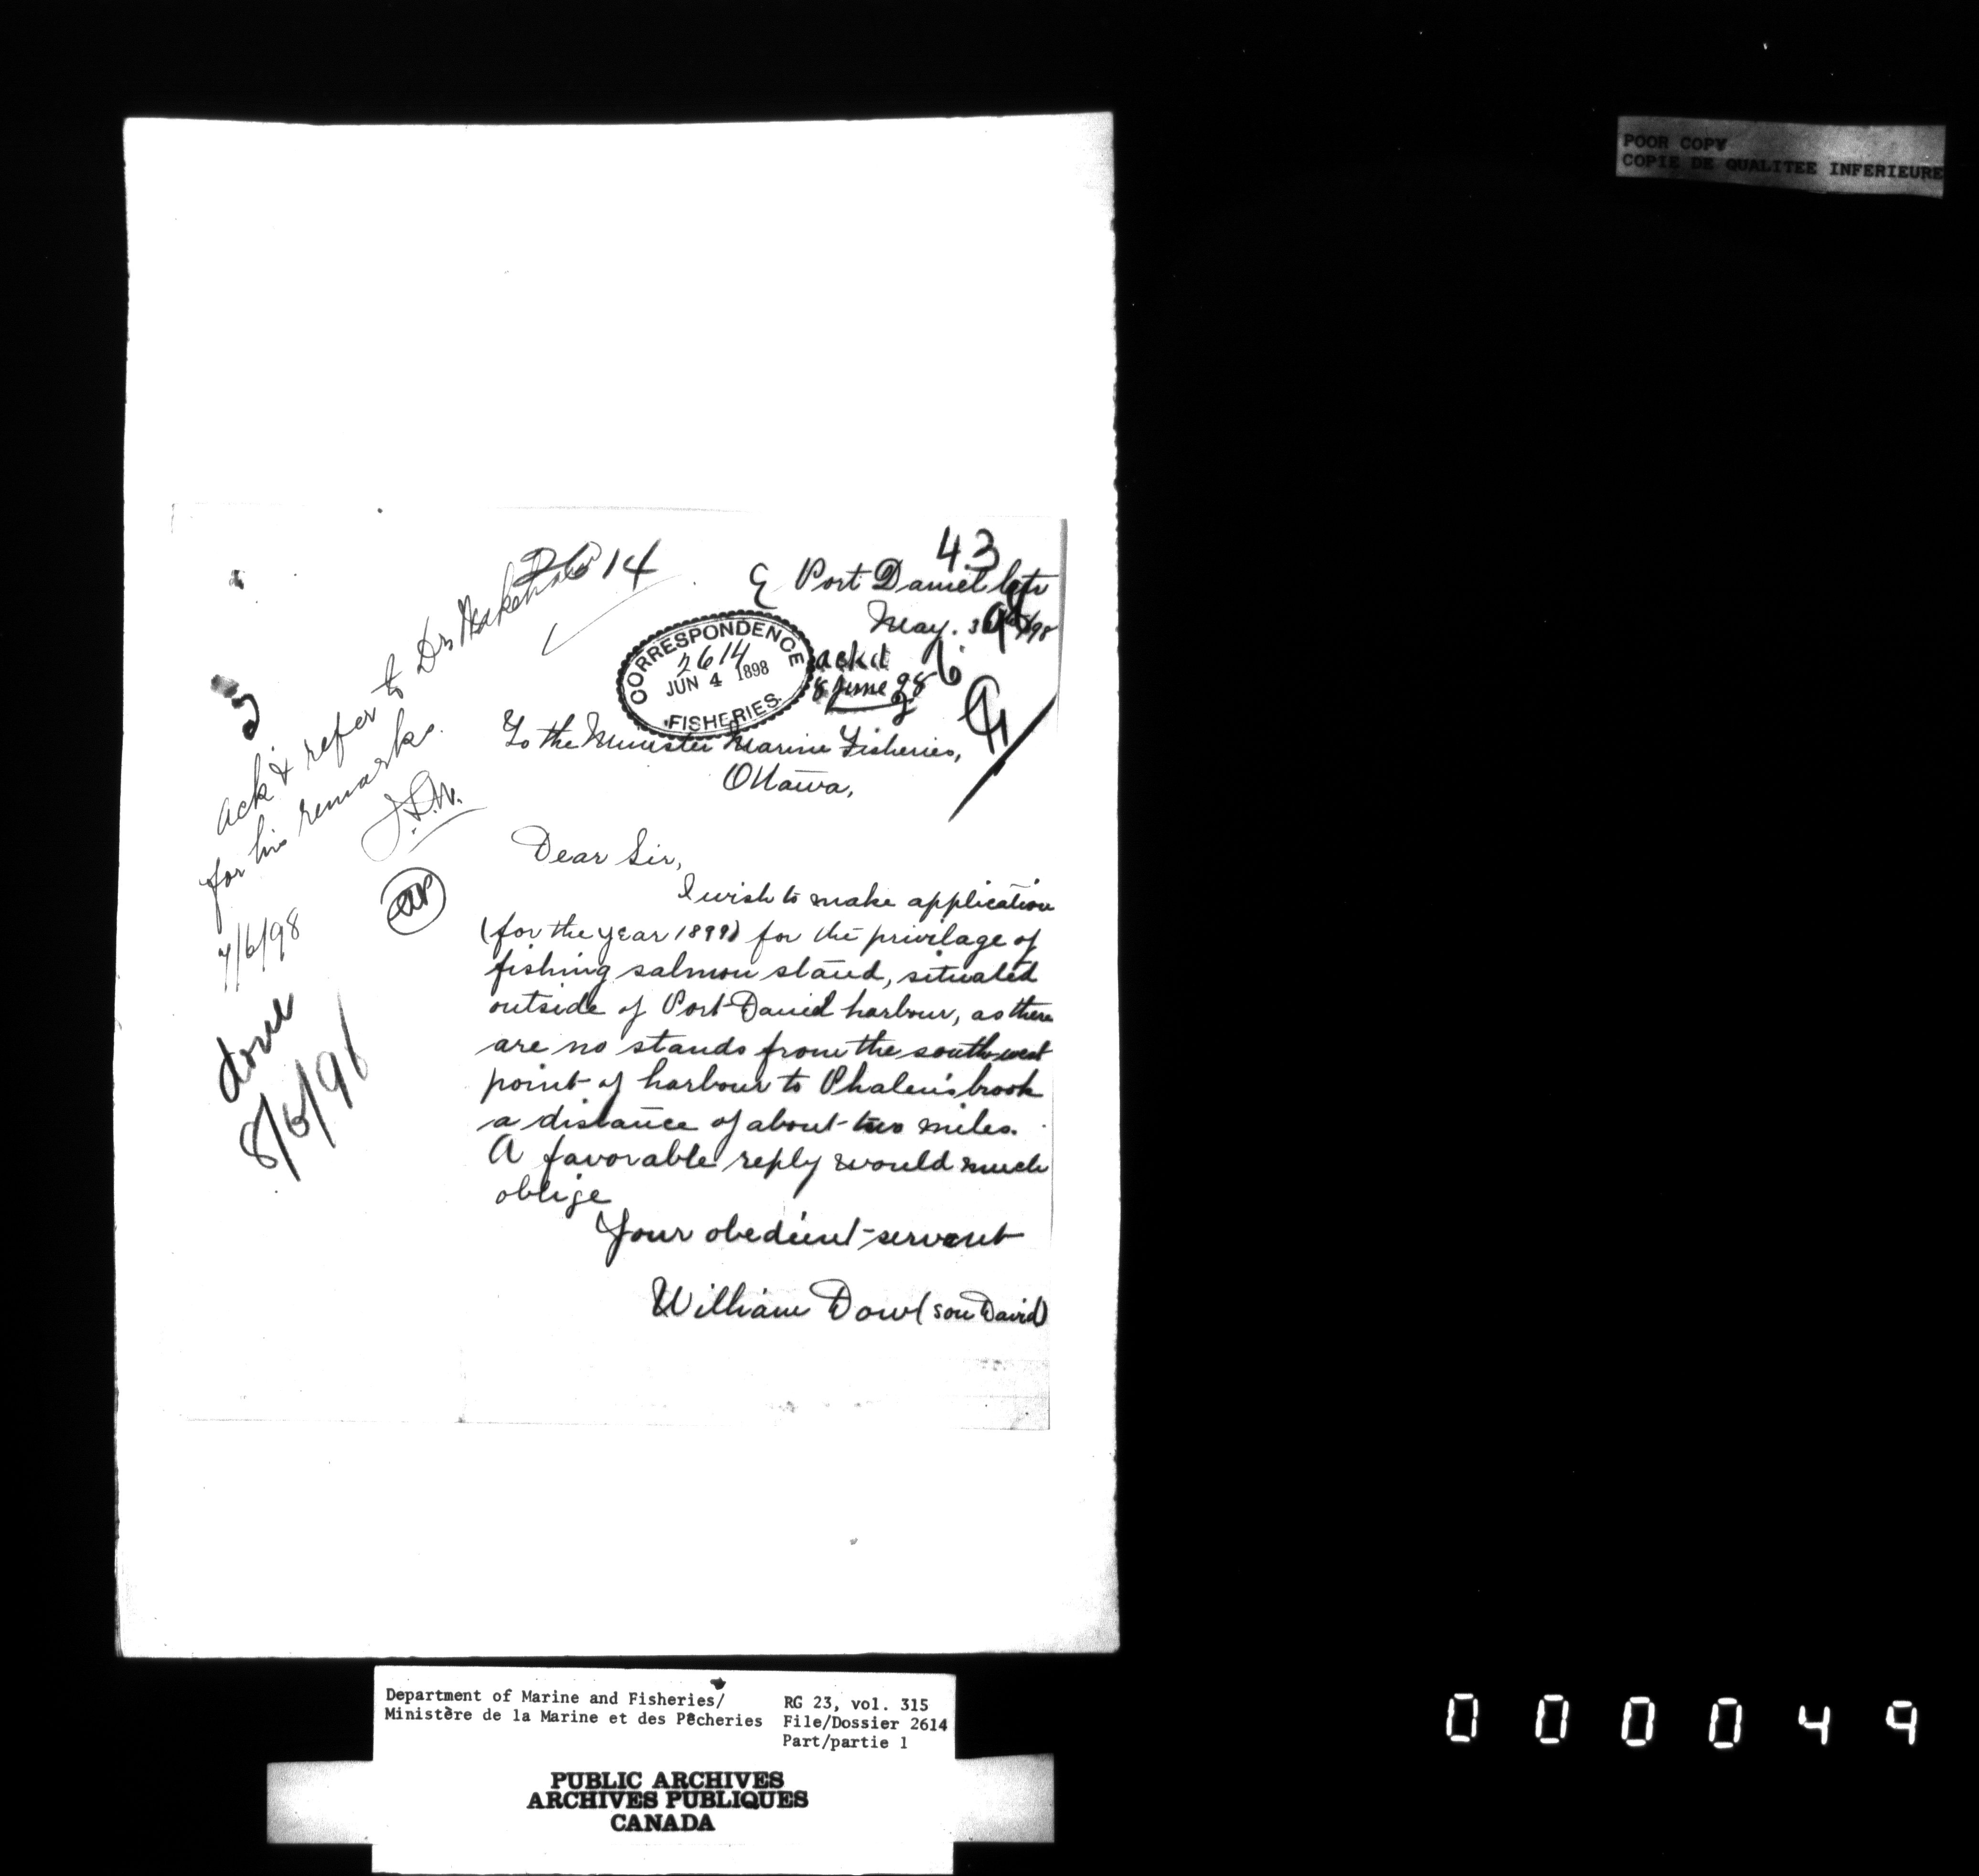 POOR COPY
COPIE DE QUALITEE INFERIEURE
43
2614
Port Daniel
May.
CORRESPONDENCE
2614
JUN 4 1898
FISHERIES.
ackd
8 June 98
To the Minister Marine Fisheries,
Ottawa,
ack & refer to Dr
for his remarks.
7/6/98
done
8/6/98
Dear Sir,
I wish to make application
(for the year 1899) for the privilage of
fishing salmon stand, situated
outside of Port Daniel harbour, as there
are no stands from the south-west
point of harbour to Phalen's brook
a distance of about two miles.
A favorable reply would much
oblige
Your obedient servent
William Dow (son David)
Department of Marine and Fisheries/
Ministère de la Marine et des Pêcheries
RG 23, vol. 315
File/Dossier 2614
Part/partie 1
PUBLIC ARCHIVES
ARCHIVES PUBLIQUES
CANADA
000049